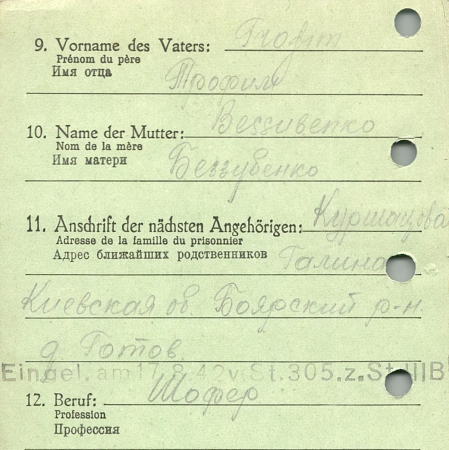 9. Vorname des Vaters: Trofim
Prénom du père
Имя отца
Трофим
10. Name der Mutter: Bessubenko
Nom de la mère
Имя матери
Беззубенко
11. Anschrift der nächsten Angehörigen:
Adresse de la famille du prisonnier
Адрес ближайших родственников
Галина
Киевская об. Боярский р-н.
д. Готов.
Eingel. am 17.8.42 v. St. 305. z. St. III B
12. Beruf: Шофер
Profession
Профессия